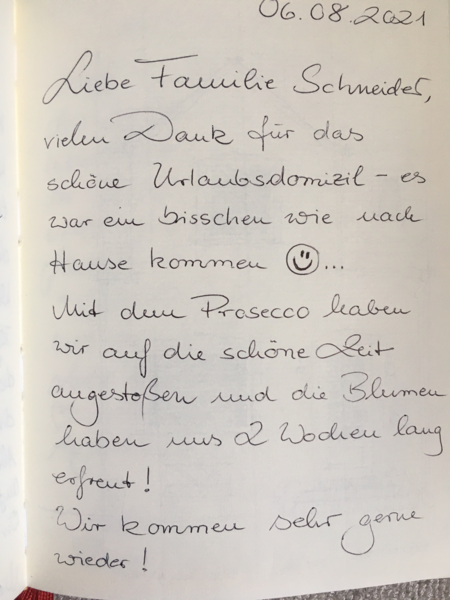 06.08.2021
Liebe Familie Schneider,
vielen Dank für das
schöne Urlaubsdomizil – es
war ein bisschen wie nach
Hause kommen ☺...
Mit dem Prosecco haben
wir auf die schöne Zeit
angestoßen und die Blumen
haben uns 2 Wochen lang
erfreut!
Wir kommen sehr gerne
wieder!